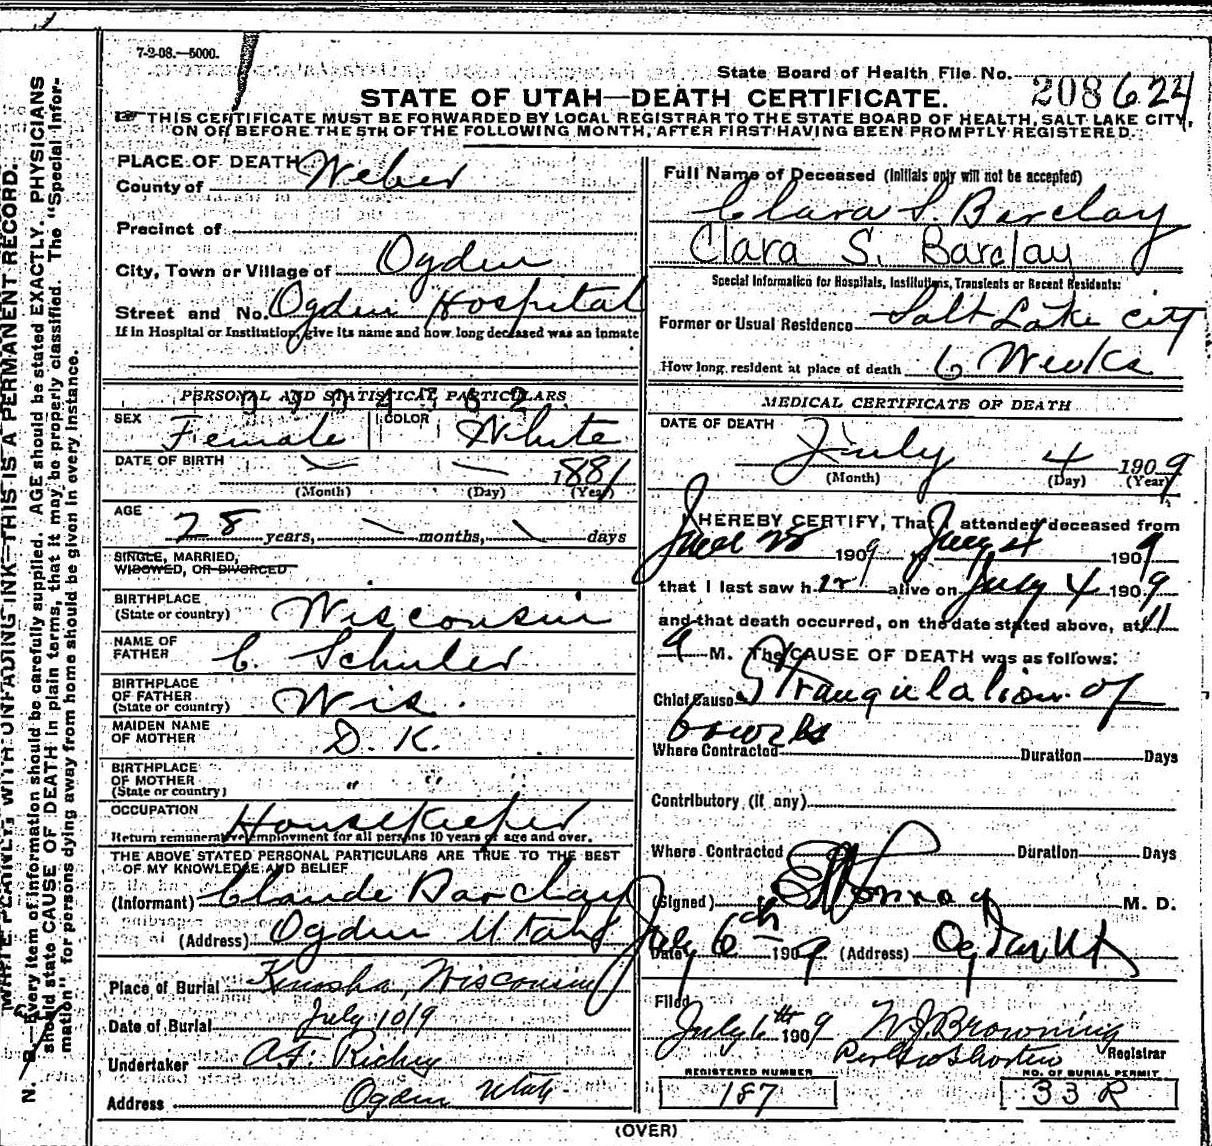 7-2-08.—5000.
State Board of Health File No. 208624
STATE OF UTAH—DEATH CERTIFICATE.
THIS CERTIFICATE MUST BE FORWARDED BY LOCAL REGISTRAR TO THE STATE BOARD OF HEALTH, SALT LAKE CITY,
ON OR BEFORE THE 5TH OF THE FOLLOWING MONTH, AFTER FIRST HAVING BEEN PROMPTLY REGISTERED.
PLACE OF DEATH
County of Weber
Precinct of
City, Town or Village of Ogden
Street and No. Ogden Hospital
If in Hospital or Institution, give its name and how long deceased was an inmate
PERSONAL AND STATISTICAL PARTICULARS
SEX Female COLOR White
DATE OF BIRTH 1881
(Month) (Day) (Year)
AGE 28 years, months, days
SINGLE, MARRIED,
WIDOWED, OR DIVORCED
BIRTHPLACE
(State or country) Wisconsin
NAME OF
FATHER C. Schuler
BIRTHPLACE
OF FATHER
(State or country) Wis.
MAIDEN NAME
OF MOTHER D.K.
BIRTHPLACE
OF MOTHER
(State or country) " " "
OCCUPATION Housekeeper
Return remunerative employment for all persons 10 years of age and over.
THE ABOVE STATED PERSONAL PARTICULARS ARE TRUE TO THE BEST
OF MY KNOWLEDGE AND BELIEF
(Informant) Claude Barclay
(Address) Ogden Utah
Place of Burial Kenosha, Wisconsin
Date of Burial July 10/9
Undertaker
Address Ogden Utah
Full Name of Deceased (Initials only will not be accepted)
Clara S. Barclay
Clara S. Barclay
Special Information for Hospitals, Institutions, Transients or Recent Residents:
Former or Usual Residence Salt Lake City
How long resident at place of death 6 Weeks
MEDICAL CERTIFICATE OF DEATH
DATE OF DEATH
July 4 1909
(Month) (Day) (Year)
I HEREBY CERTIFY, That I attended deceased from
June 28 1909 July 4 1909
that I last saw her alive on July 4 1909
and that death occurred, on the date stated above, at 11
a M. The CAUSE OF DEATH was as follows:
Chief Cause Strangulation of
bowels
Where Contracted Duration Days
Contributory (if any)
Where Contracted Duration Days
(Signed) M. D.
Date July 6th 1909 (Address) Ogden Ut
Filed
July 6th 1909 W J Browning
Registrar
REGISTERED NUMBER
187
NO. OF BURIAL PERMIT
33 R
(OVER)
WRITE PLAINLY WITH UNFADING INK—THIS IS A PERMANENT RECORD.
N. B.—Every item of information should be carefully supplied. AGE should be stated EXACTLY. PHYSICIANS
should state CAUSE OF DEATH in plain terms, that it may be properly classified. The "Special Infor-
mation" for persons dying away from home should be given in every instance.